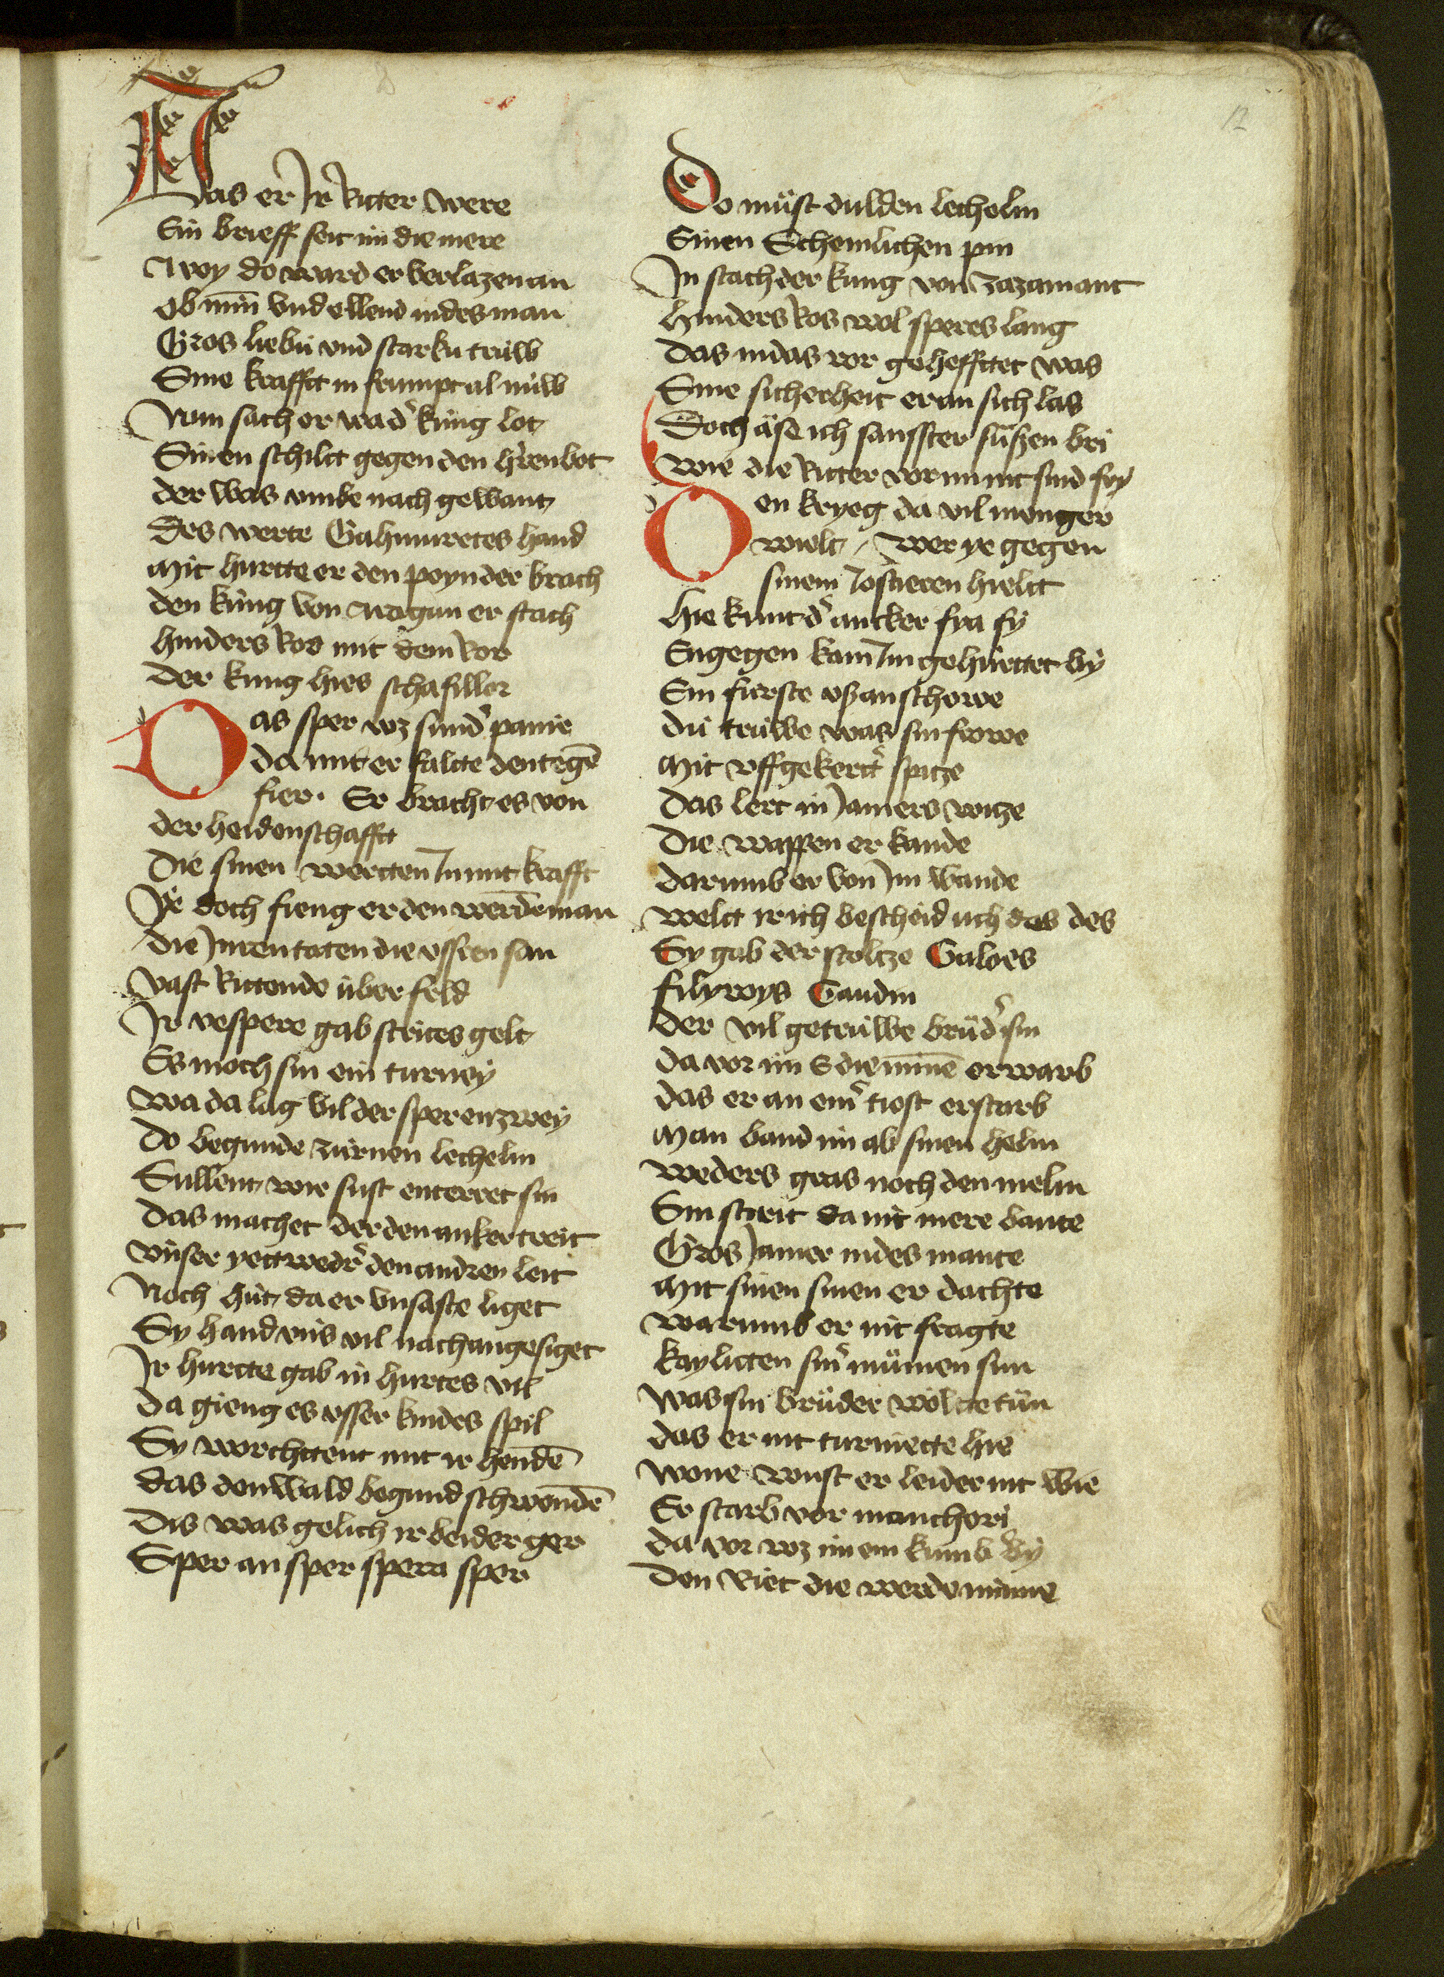 12
Das er Jr Ritter were
Sin brieff seit im die mere
Avoy do ward er verlazen an
ob min̄ vnd ellend in des man
Gros liebū vnd starku trüw
Sine krafft in frumpt al nüw
Nun sach er wa dˀ küng lot
Sinen schilt gegen den hˀren bot
der was vmbe nach gewant
Des werte Gahmuretes hand
Mit hurtte er den poynder brach
den küng von Aragun er stach
hinders Ros mit dem Ror
Der kung hies schafillor
Das sper wz sundˀ panie
da mit er falte den tegē
fier. Er bracht es von
der heidenschafft
Die sinen wertten Jn mit krafft
Ye doch fieng er den werdē man
die Jnren taten die vssren san
Vast Rittende über feld
Jr vespere gab strites gelt
Es moch sin ein turney
Wa da lag vil der speren zwey
Do begunde zürnen lechelin
Süllent wir sust enterret sin
Das machet der den anker treit
Vnser yettwedrˀ den andren leit
Noch hüt da er vnsaste liget
Sy hand vns vil nach angesiget
Jr hurtte gab in hurtes vil
Da gieng es vsser kindes spil
Sy worchttent mit ir hendē
das den wald begund schwendē
Dis was gelich ir beider ger
Sper an sper spera sper
Do müst dulden lecholin
Sinen Schemlichen pin
Jn stach der kung von zazamant
hinders Ros wol speres lang
das in das ror gehefftet was
Sine sicherheit er an sich las
Doch äse ich sanffter süssen bri
Wie die Ritter vor im nit sind fry
Den kryeg da vil menger
wielt / Wer ye gegen
sinem Jostieren hielt
hie kunt dˀ ancker fya fy
Engegen kam Jm gehürttet by
Ein fürste vss anschowe
dü truwe was sin frowe
Mit vffgekertˀ spitze
Das lert in Jamers witze
Die wappen er kande
darumb er von Jm wande
Welt ir ich bescheid üch das des
Sy gab der stoltze Galoes
filyroys Gandin
der vil getrüwe brüdˀ sin
da vor im S die min̄e erwarb
das er an einˀ tiost erstarb
Man band im ab sinen helm
weders gras noch den melm
Sin strit da nit mere bante
Gros Jamer in des mante
Mit sinen sinen er dachte
warumb er nit fragte
kayletten sinˀ mümen sun
Was sin brüder wöltte tün
das er nit turniette hie
Wone wust er leider nit wie
Er starb vor manchori
da vor wz im ein kumbˀ by
den Riet die werde minne